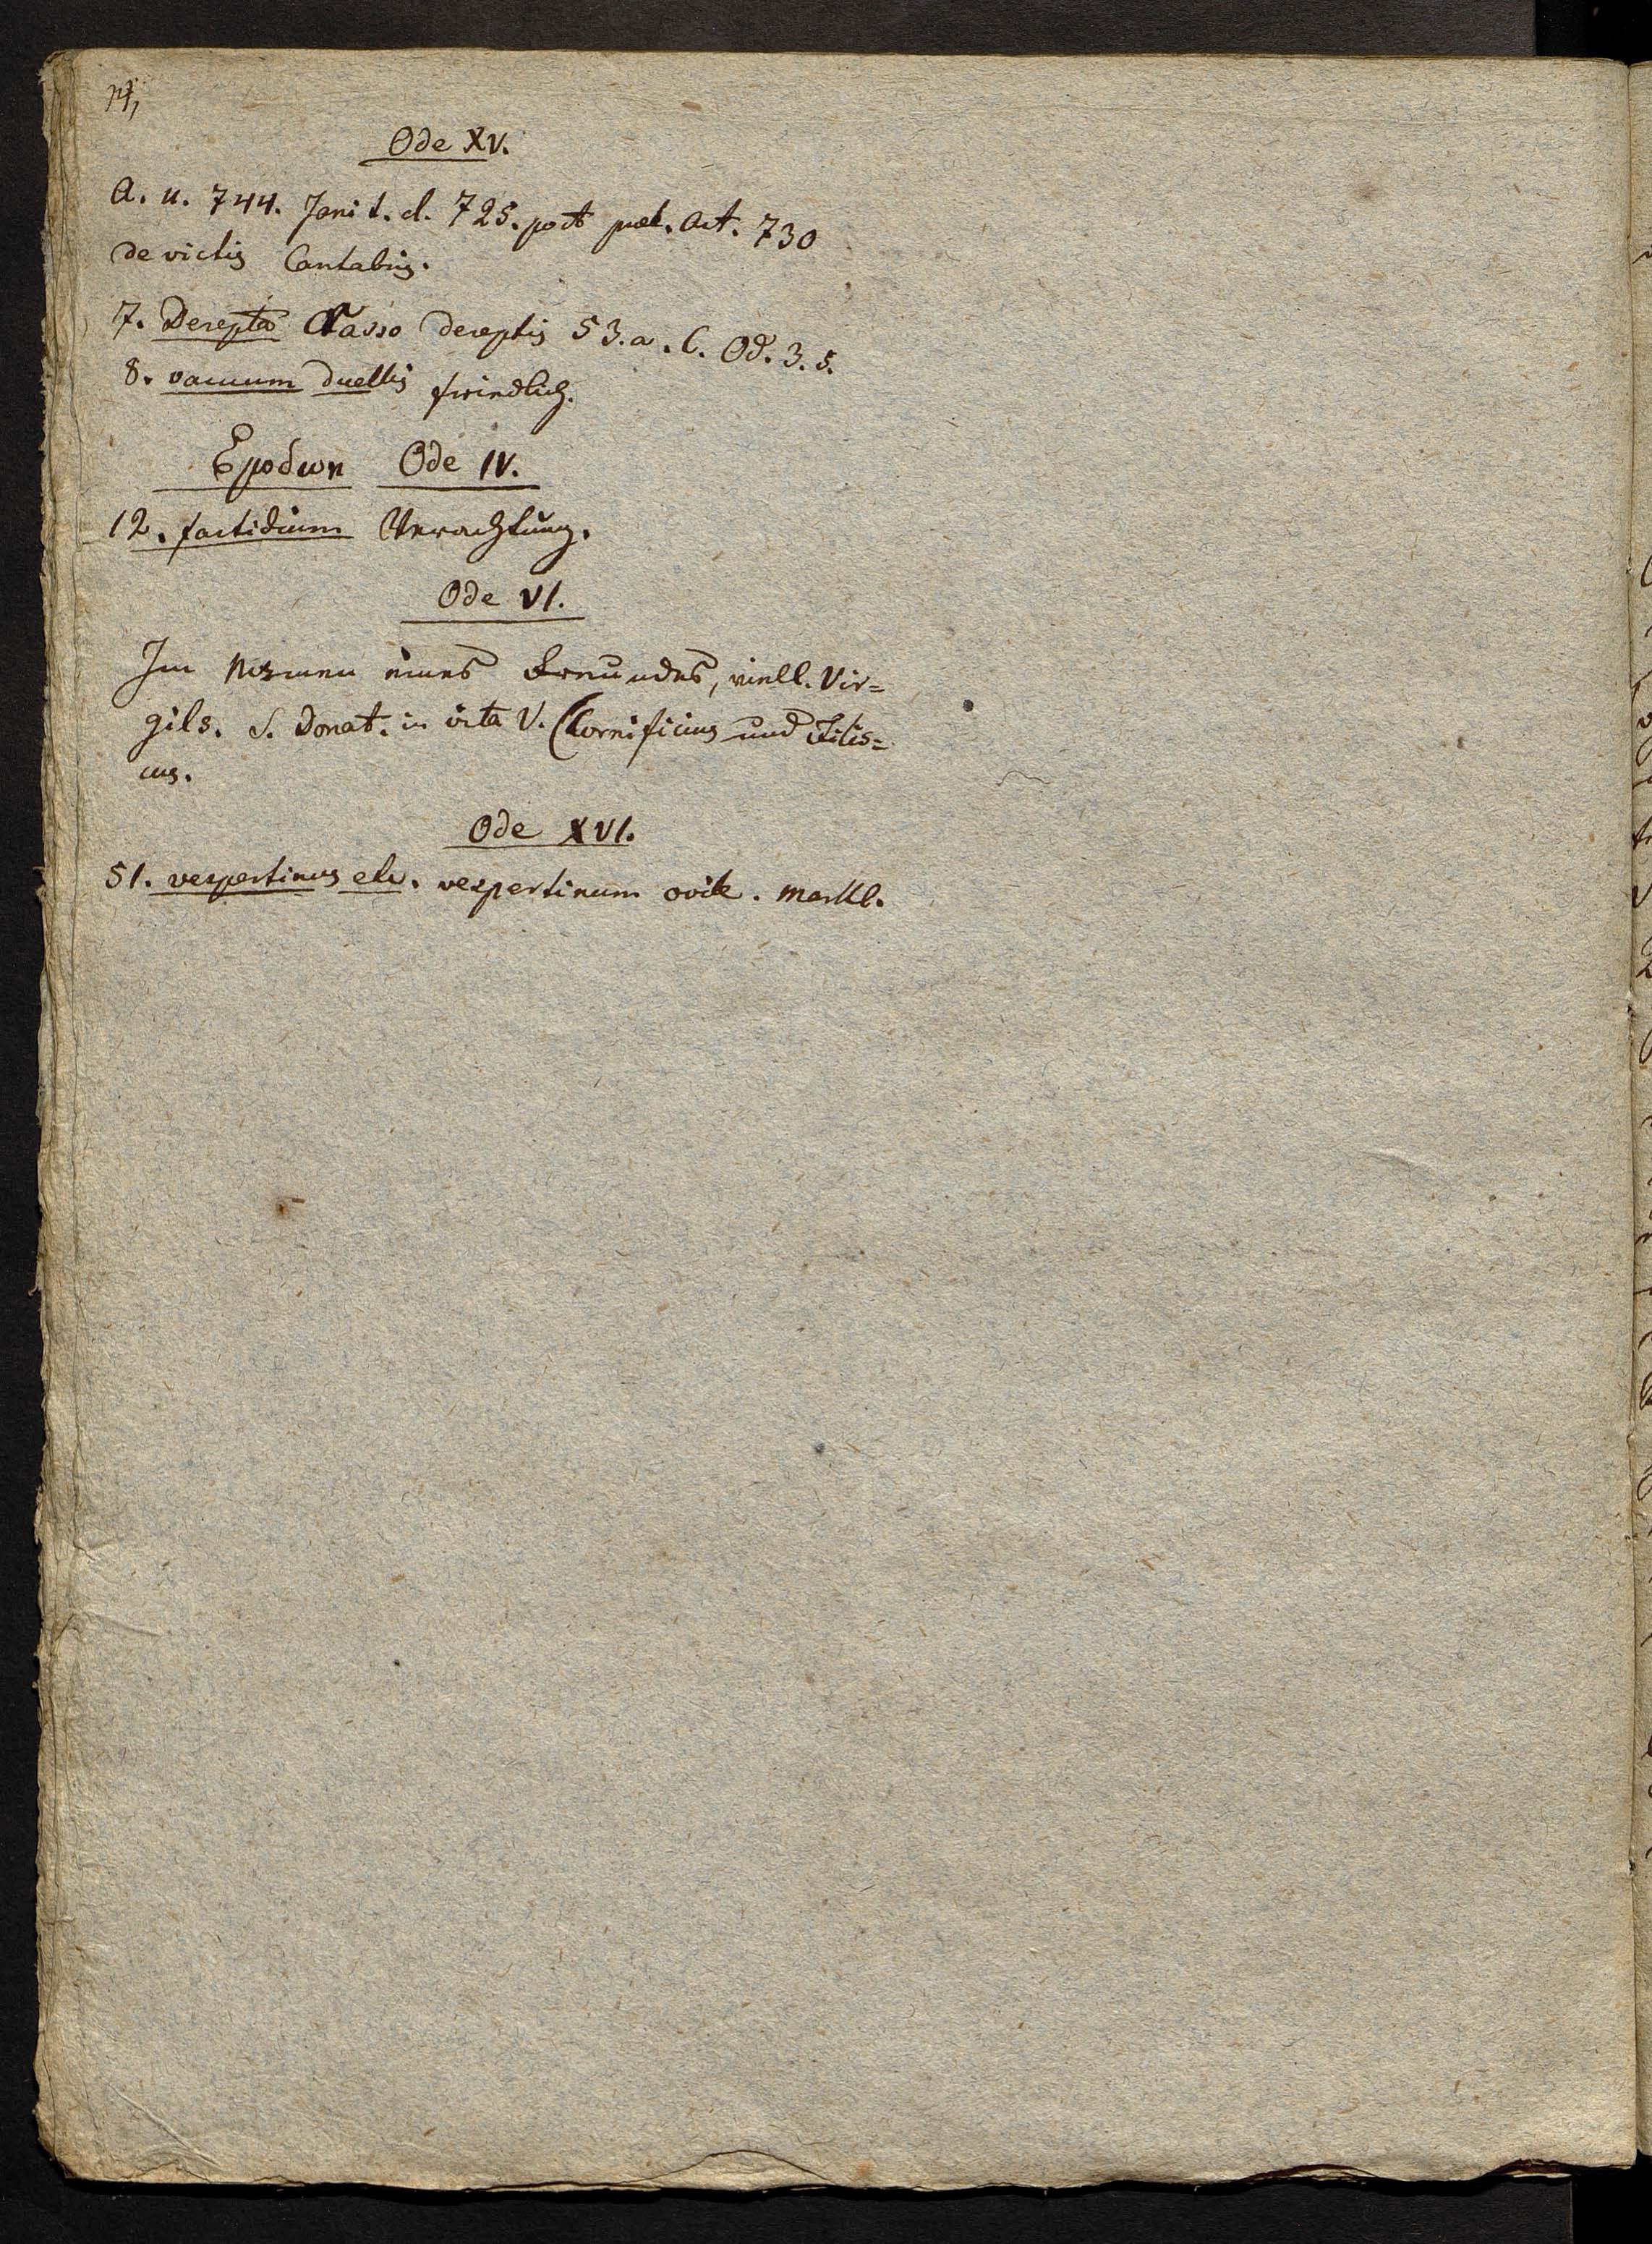 Ode XV.
A. u. 744. Jani t. cl. 725. post p 1. Act. 730
de victis Cantabris.
7. Derepta Crasso dereptis 53. a. C. Od. 3. 5.
8. vacuum duellis friedlich.
Epodωn Ode IV.
12. fastidium Verachtung.
Ode VI.
Im Namen eines Freundes, viell. Vir=
gils. S. Donat. in vita V. (Cornificius und Filis=
cus.
Ode XVI.
51. vespertinus etc. vespertinum ovile. Markl.